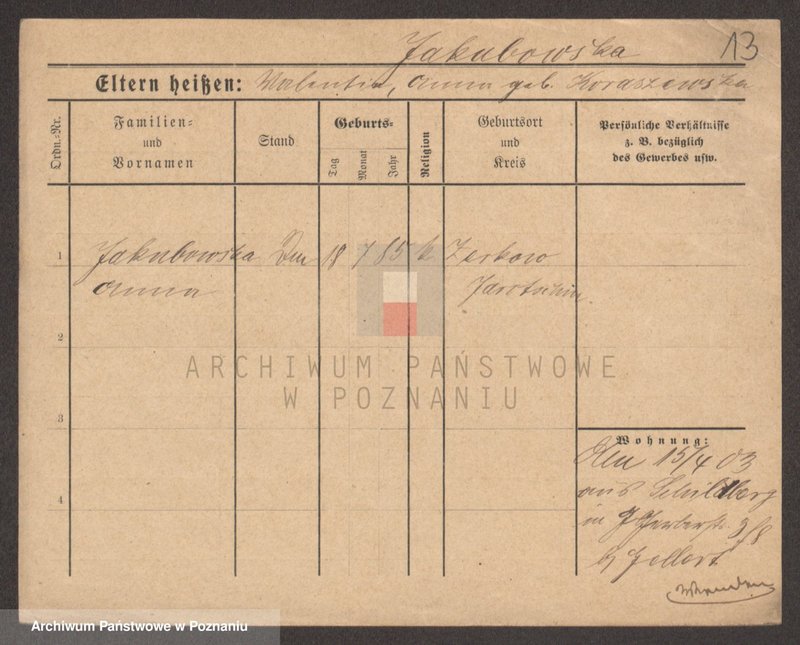 Jakubowska 13
Eltern heißen: Valentin, Anna geb. Koraszewska
Ordn.-Nr.
Familien- und Vornamen
Stand
Geburts-
Tag
Monat
Jahr
Religion
Geburtsort und Kreis
Persönliche Verhältnisse
z. B. bezüglich
des Gewerbes usw.
1 Jakubowska 18 7 85 k Zerkow
Anna Jarotschin
2
3
4
ARCHIWUM PAŃSTWOWE
W POZNANIU
Wohnung:
Den 15/4 03
aus Schildberg
in 9/8
b Gellert
Archiwum Państwowe w Poznaniu